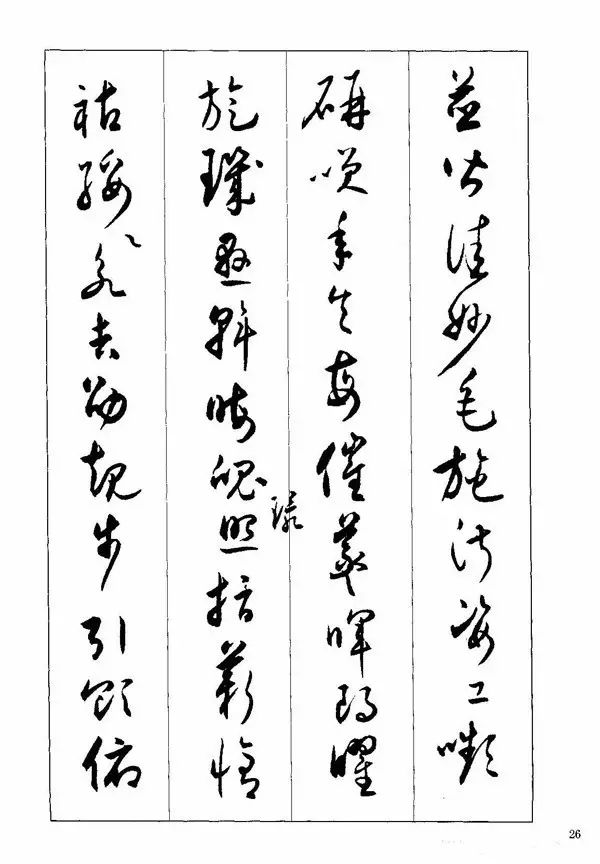 並皆佳妙毛施淑姿工嚬
研咲年矢每催羲暉朗曜
旋璣懸斡晦魄照指薪脩
環
祜綏永吉劭矩步引領俯
26